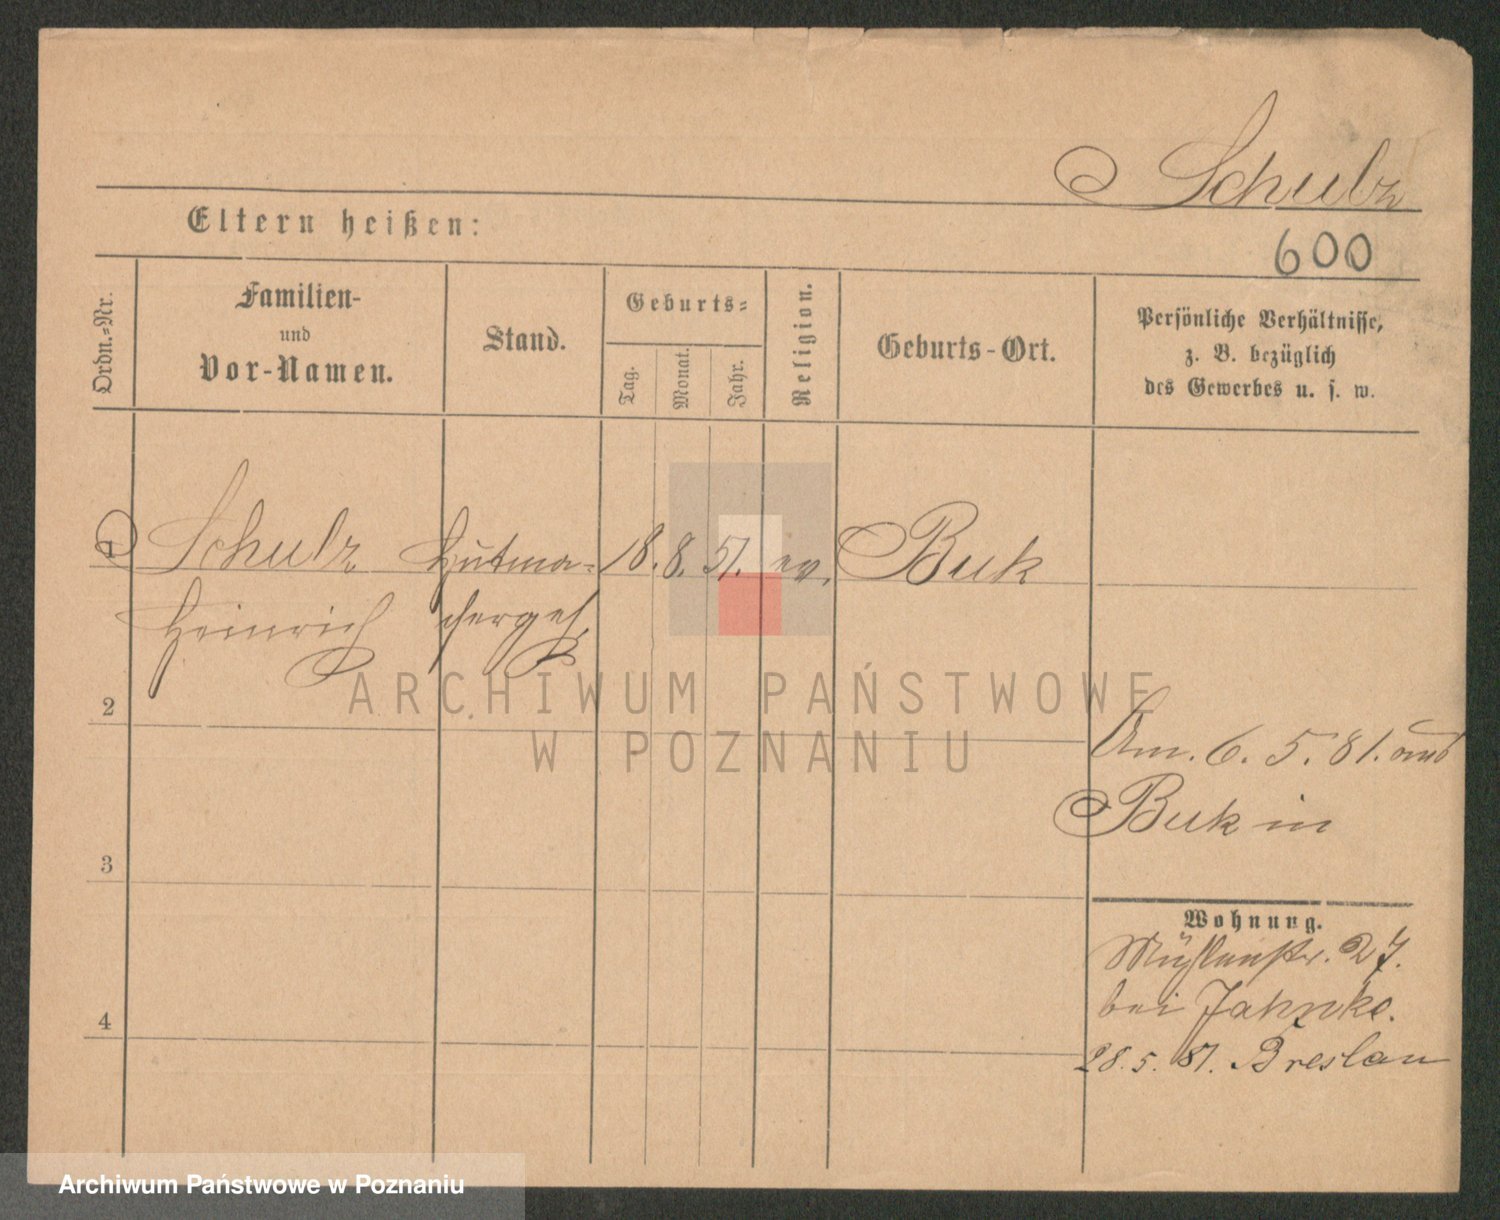 Schulz
Eltern heißen:
600
Ordn.-Nr.
Familien-
und
Vor-Namen.
Stand.
Geburts-
Tag.
Monat.
Jahr.
Religion.
Geburts-Ort.
Persönliche Verhältnisse,
z. B. bezüglich
des Gewerbes u. s. w.
1 Schulz Hutma- 18. 8. 57. ev. Buk
Heinrich chergeh.
2
3
4
Am. 6. 5. 81. aus
Buk in
Wohnung.
Mühlenstr. 27.
bei Jahnke.
28. 5. 81. Breslau
ARCHIWUM PAŃSTWOWE
W POZNANIU
Archiwum Państwowe w Poznaniu